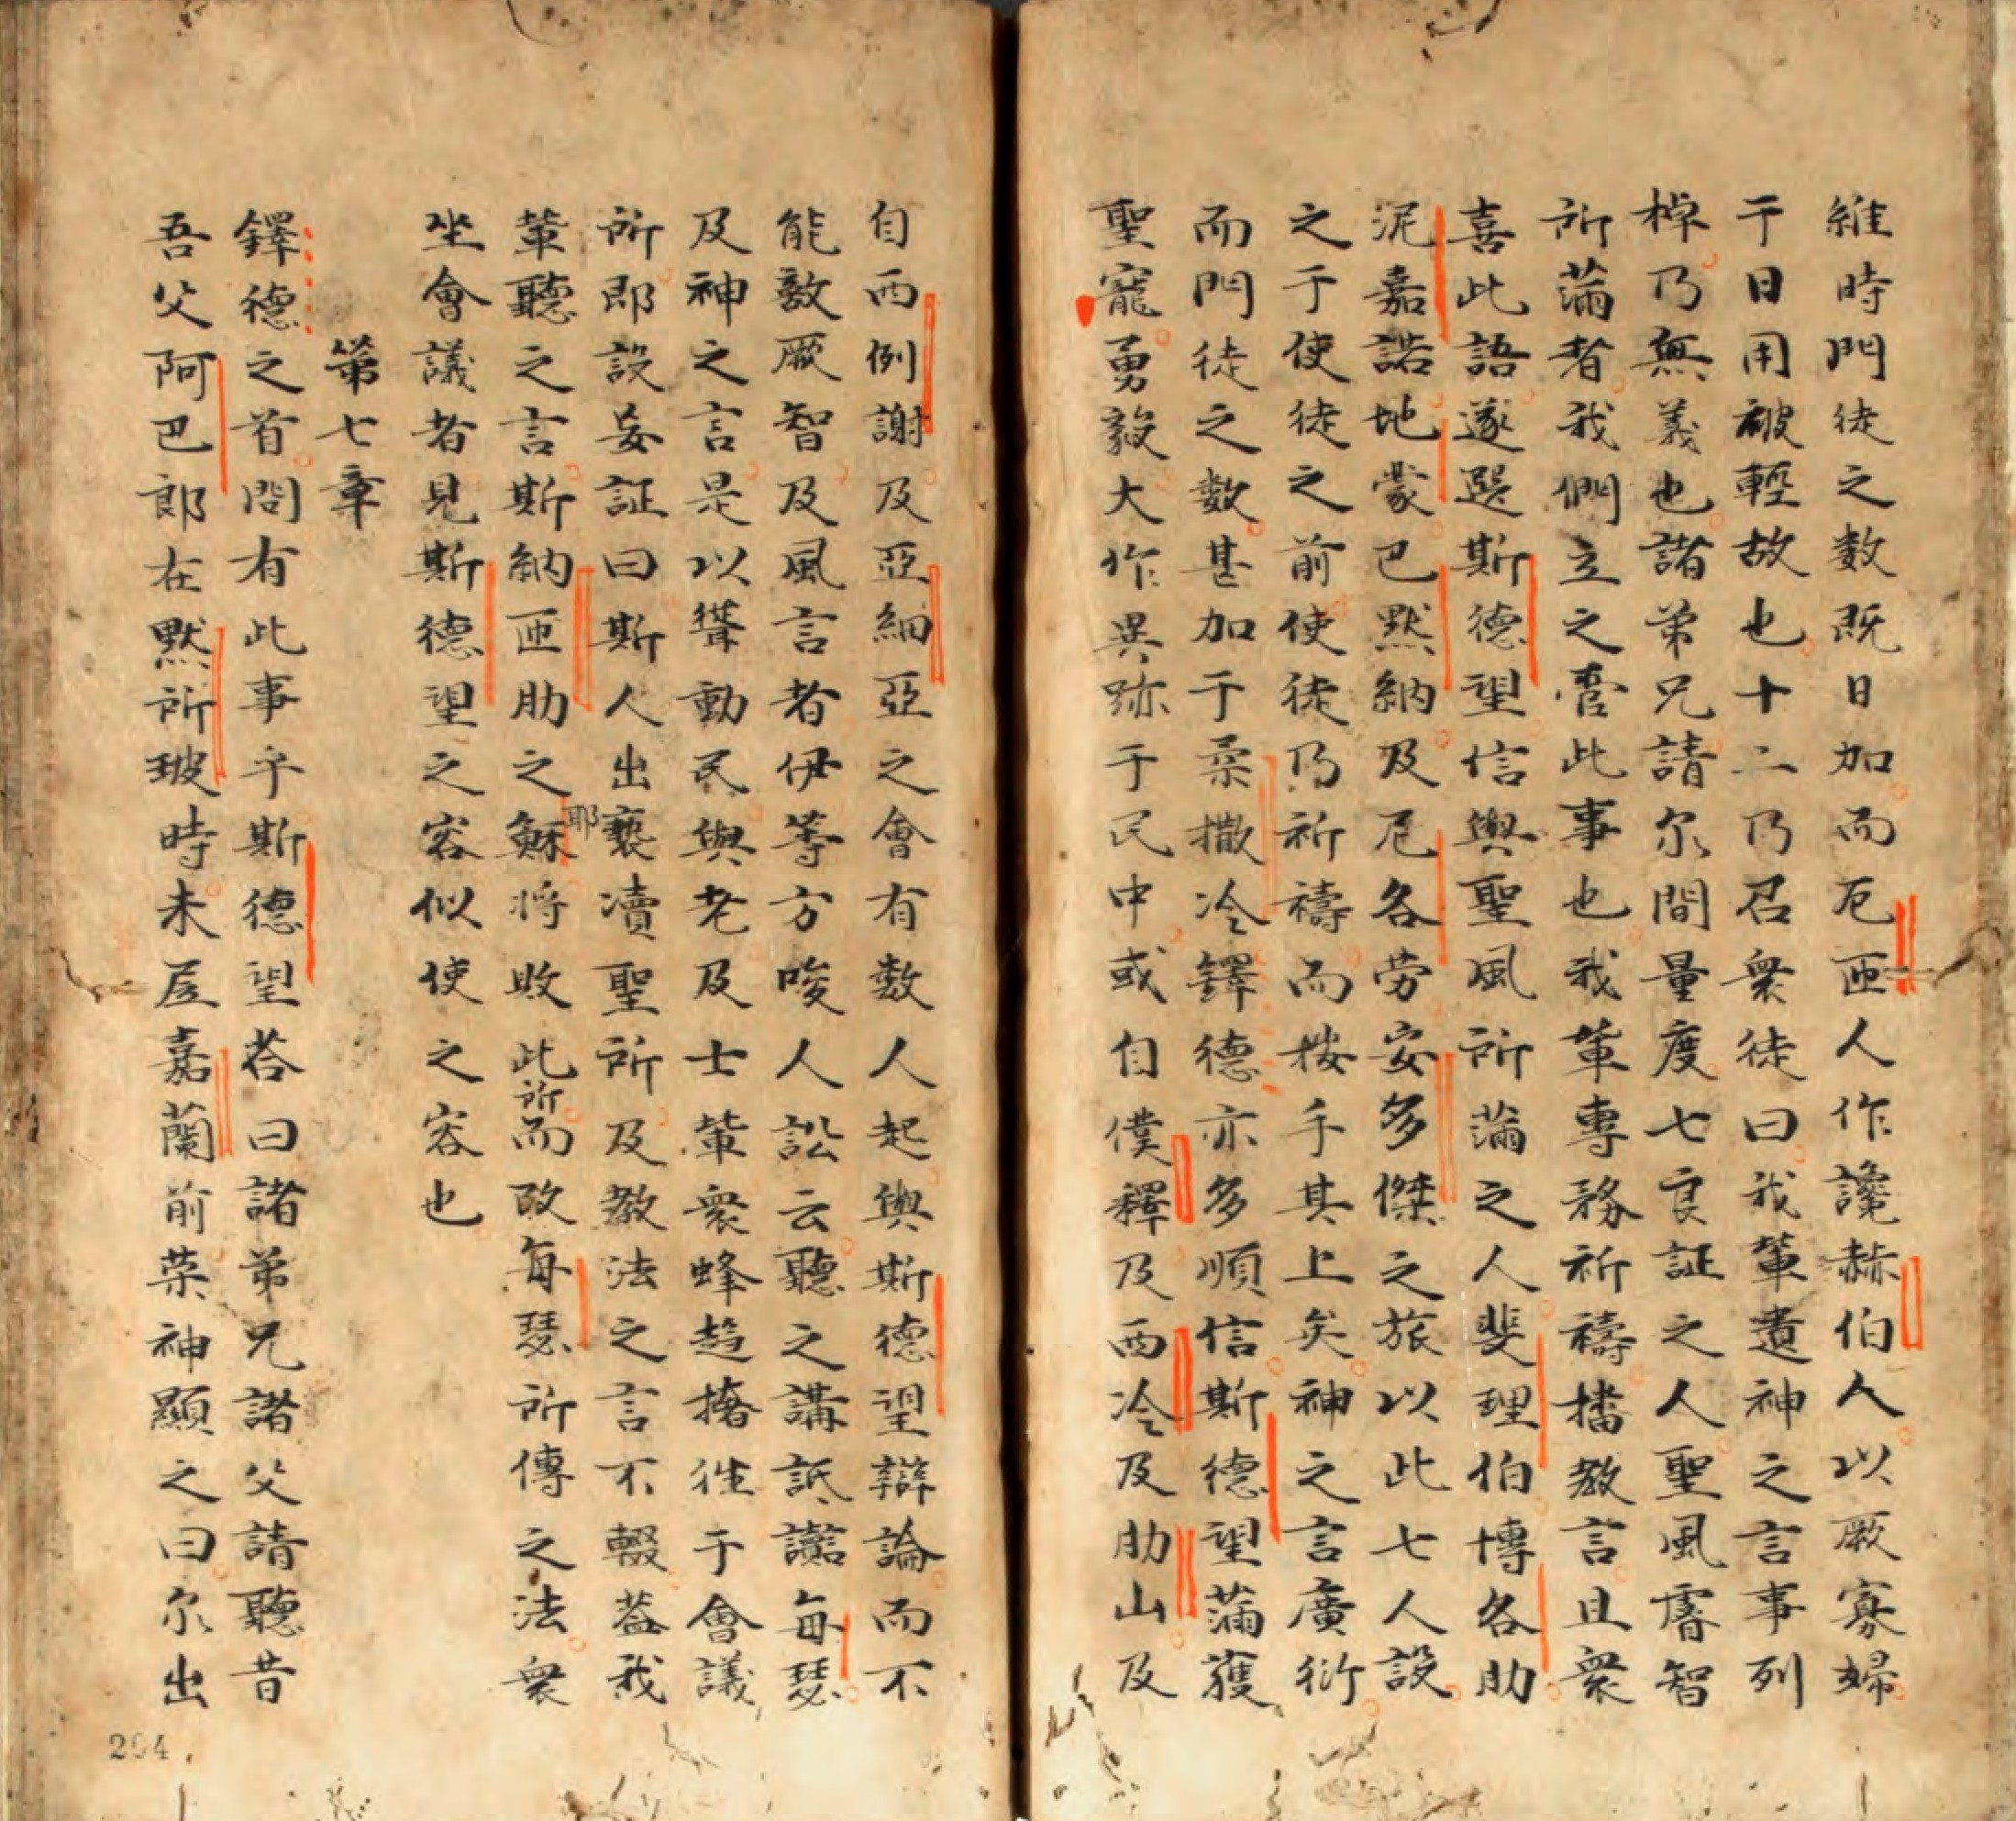 維時門徒之数既日加而厄匝人作讒赫伯人以厥寡婦
于日用被輕故也十二乃召衆徒曰我輩遺神之言事列
棹乃無義也諸弟兄請尔間量度七良証之人聖風睿智
所滿者我們立之管此事也我輩專務祈禱播教言且衆
喜此語遂選斯德望信與聖風所滿之人斐理伯博各肋
泥嘉諾地蒙巴黙納及尼各劳安多傑之旅以此七人設
之于使徒之前使徒乃祈禱而按手其上矣神之言廣衍
而門徒之数甚加于柔撒冷鐸德亦多順信斯德望滿獲
聖寵勇毅大作異跡于民中或自僕釋及西冷及肋山及
自西例謝及亞細亞之會有数人起與斯德望辯論而不
能敵厥智及風言者伊等方唆人訟云聽之講詆讟每瑟
及神之言是以聳動民與老及士輩衆蜂趋搼徃于會議
所即設妄証曰斯人出褻瀆聖所及教法之言不輟葢我
輩聽之言斯納匝肋之耶穌将敗此所而改每瑟所傳之法衆
坐會議者見斯德望之容似使之容也
第七章
鐸德之首問有此事乎斯德望荅曰諸弟兄諸父請聽昔
吾父阿巴郎在黙所玻時未居嘉蘭前荣神顯之曰尔出
204